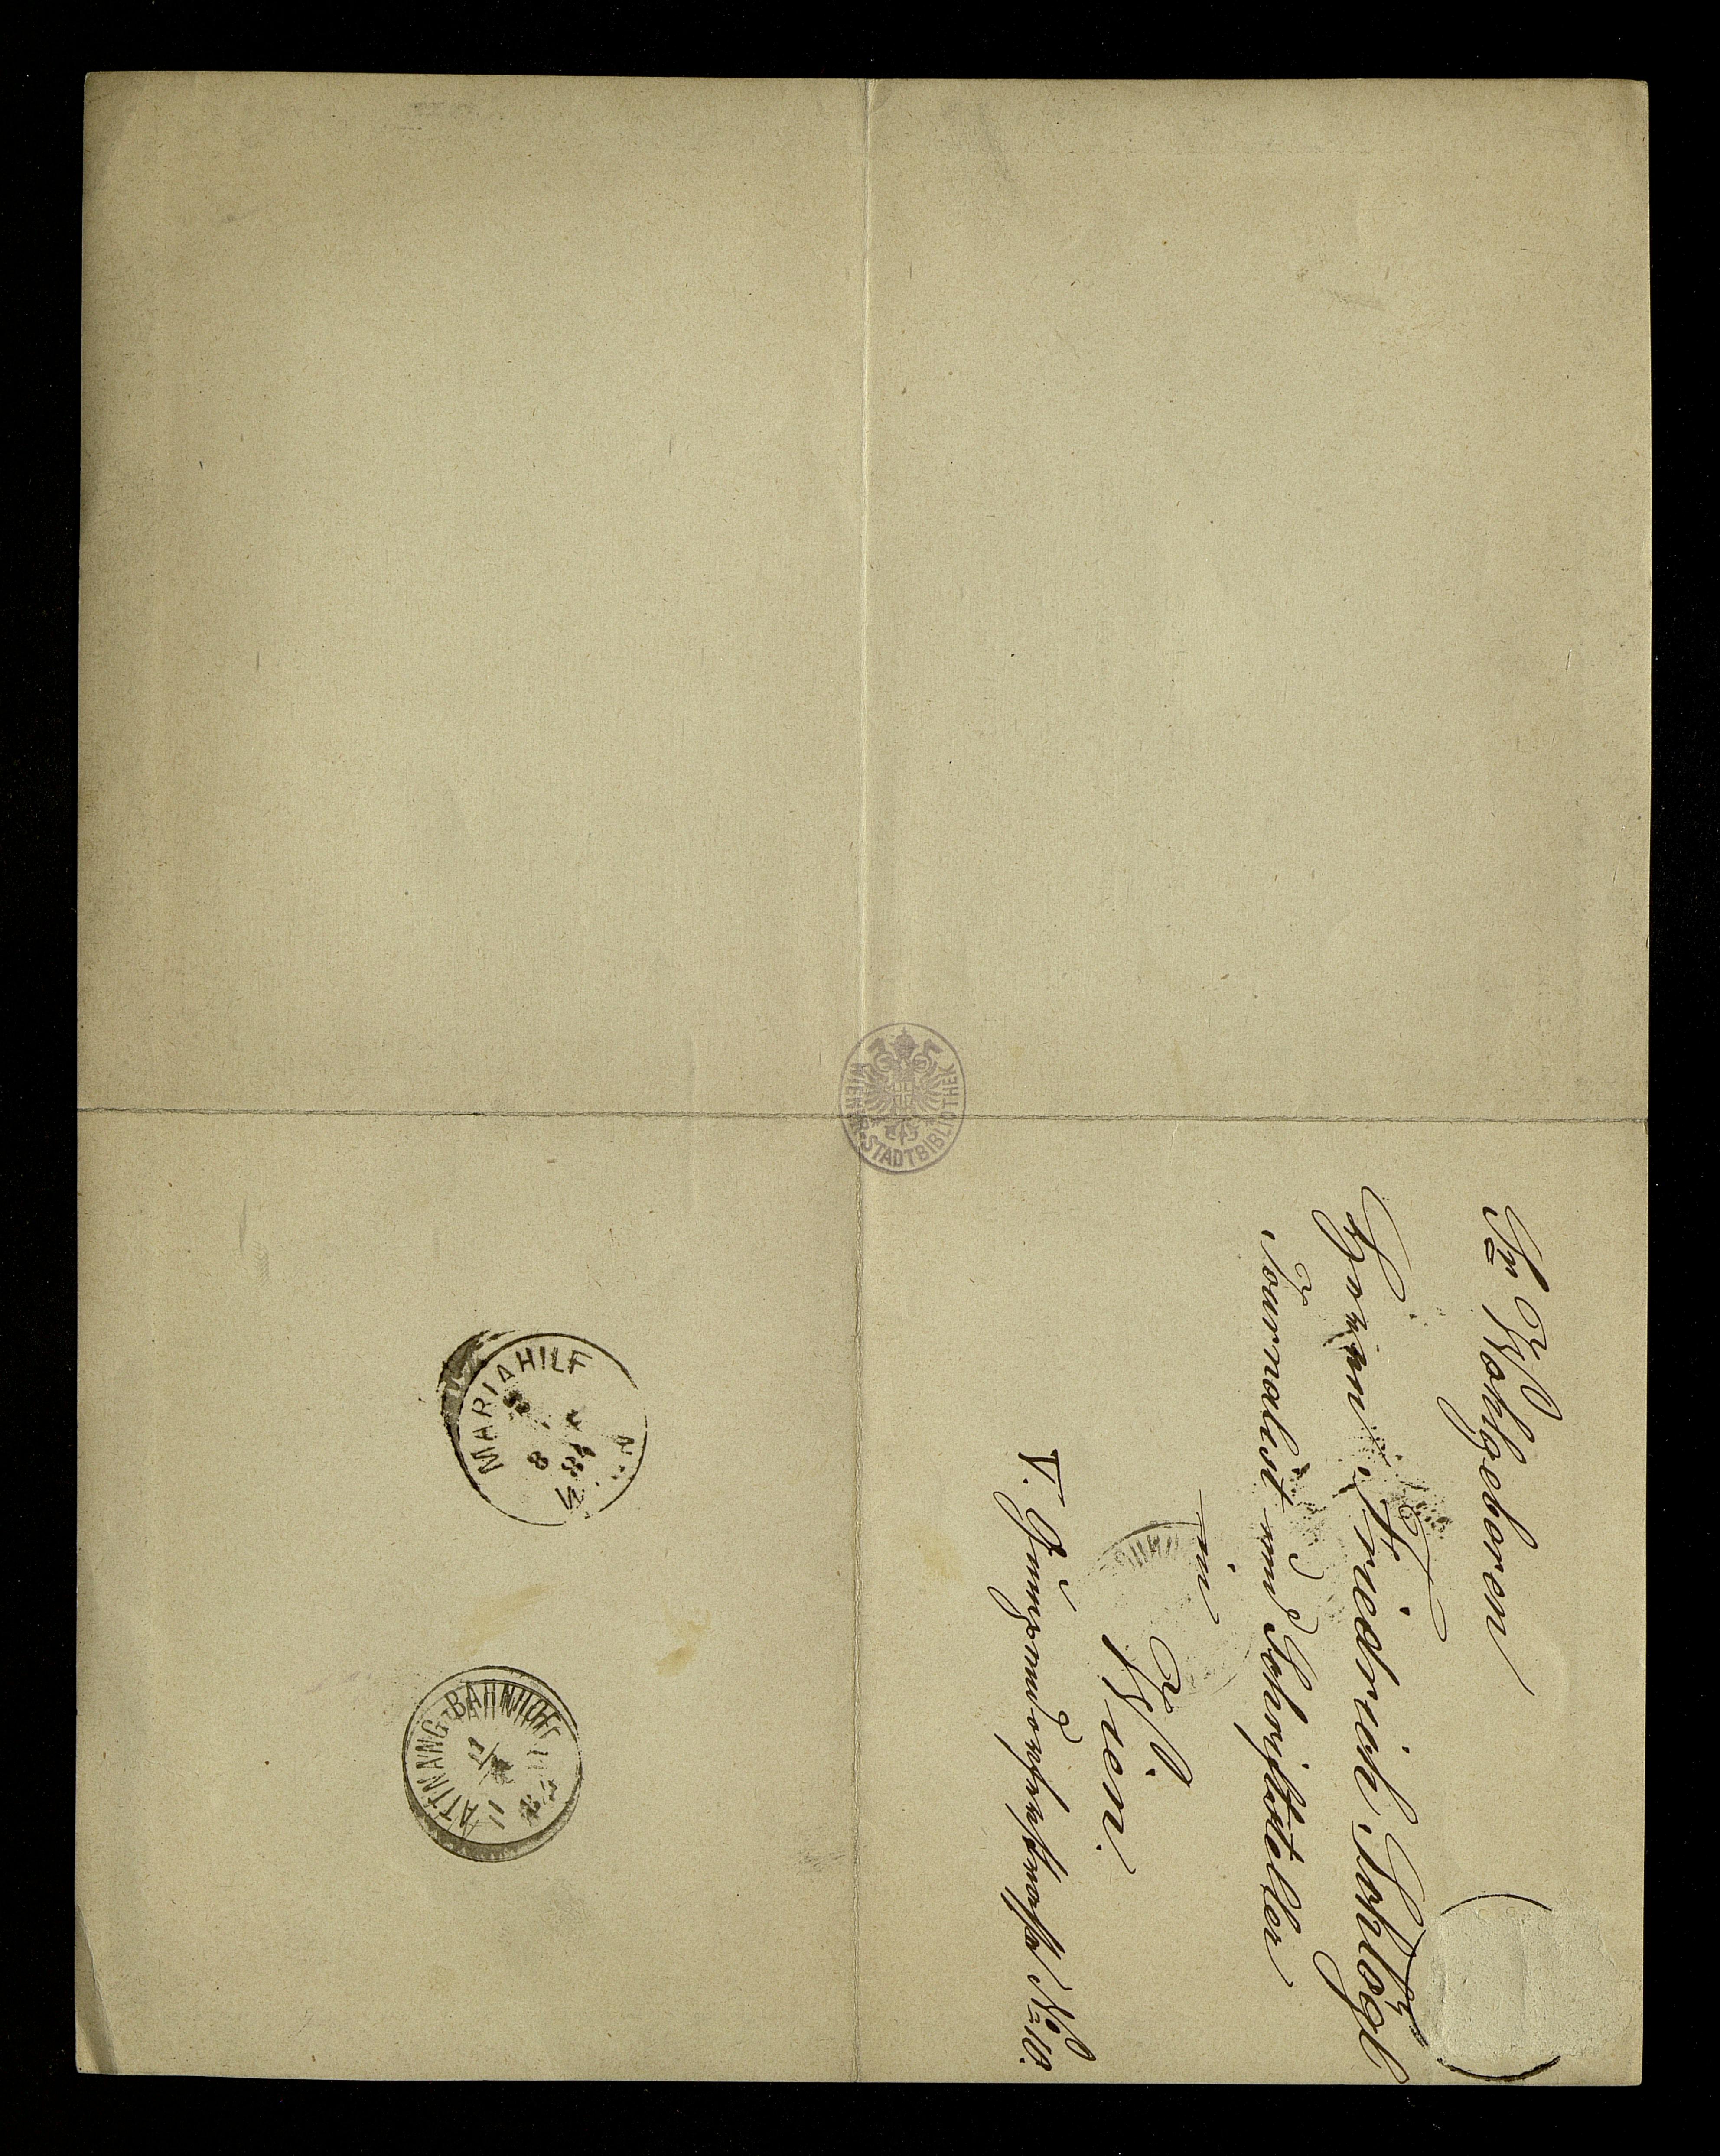 Sr Wohlgeboren
Herrn Friedrich Schlögl
Journalist und Schriftsteller
in
Wien.
V. Grüngasse No 10.
WIENER-STADTBIBLIOTHEK
MARIAHILF
ATTNANG-BAHNHOF